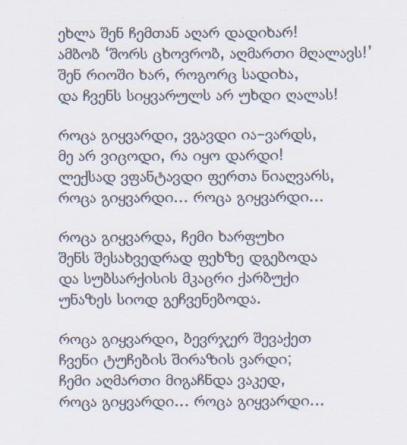 ეხლა შენ ჩემთან აღარ დადიხარ!
ამბობ ‘შორს ცხოვრობ, აღმართი მღალავს!’
შენ რიოში ხარ, როგორც სადიხა,
და ჩვენს სიყვარულს არ უხდი ღალას!

როცა გიყვარდი, ვგავდი ია-ვარდს,
მე არ ვიცოდი, რა იყო დარდი!
ლექსად ვფანტავდი ფერთა ნიაღვარს,
როცა გიყვარდი... როცა გიყვარდი...

როცა გიყვარდა, ჩემი ხარფუხი
შენს შესახვედრად ფეხზე დგებოდა
და სუბსარქისის მკაცრი ქარბუქი
უნაზეს სიოდ გეჩვენებოდა.

როცა გიყვარდი, ბევრჯერ შევაქეთ
ჩვენი ტუჩების შირაზის ვარდი;
ჩემი აღმართი მიგაჩნდა ვაკედ,
როცა გიყვარდი... როცა გიყვარდი...